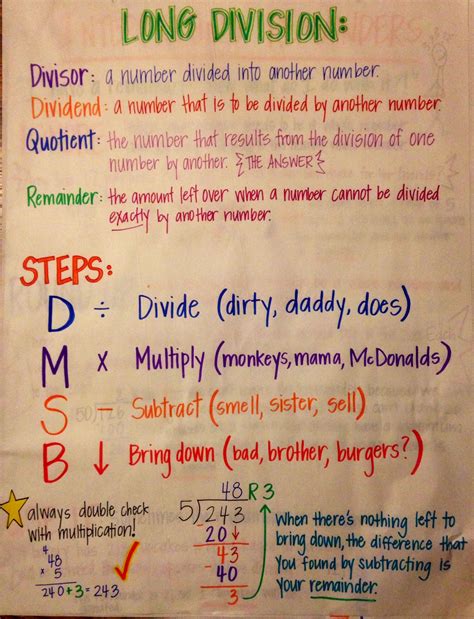 LONG DIVISION:
Divisor: a number divided into another number.
Dividend: a number that is to be divided by another number.
Quotient: the number that results from the division of one
number by another. {THE ANSWER}
Remainder: the amount left over when a number cannot be divided
exactly by another number.
STEPS:
D ÷ Divide (dirty, daddy, does)
M x Multiply (monkeys, mama, McDonalds)
S - Subtract (smell, sister, sell)
B ↓ Bring down (bad, brother, burgers?)
always double check
with multiplication!
4
48
x 5
240+3=243
✓
48 R 3
5)243
20↓
43
-40
3
When there's nothing left to
bring down, the difference that
you found by subtracting is
your remainder.